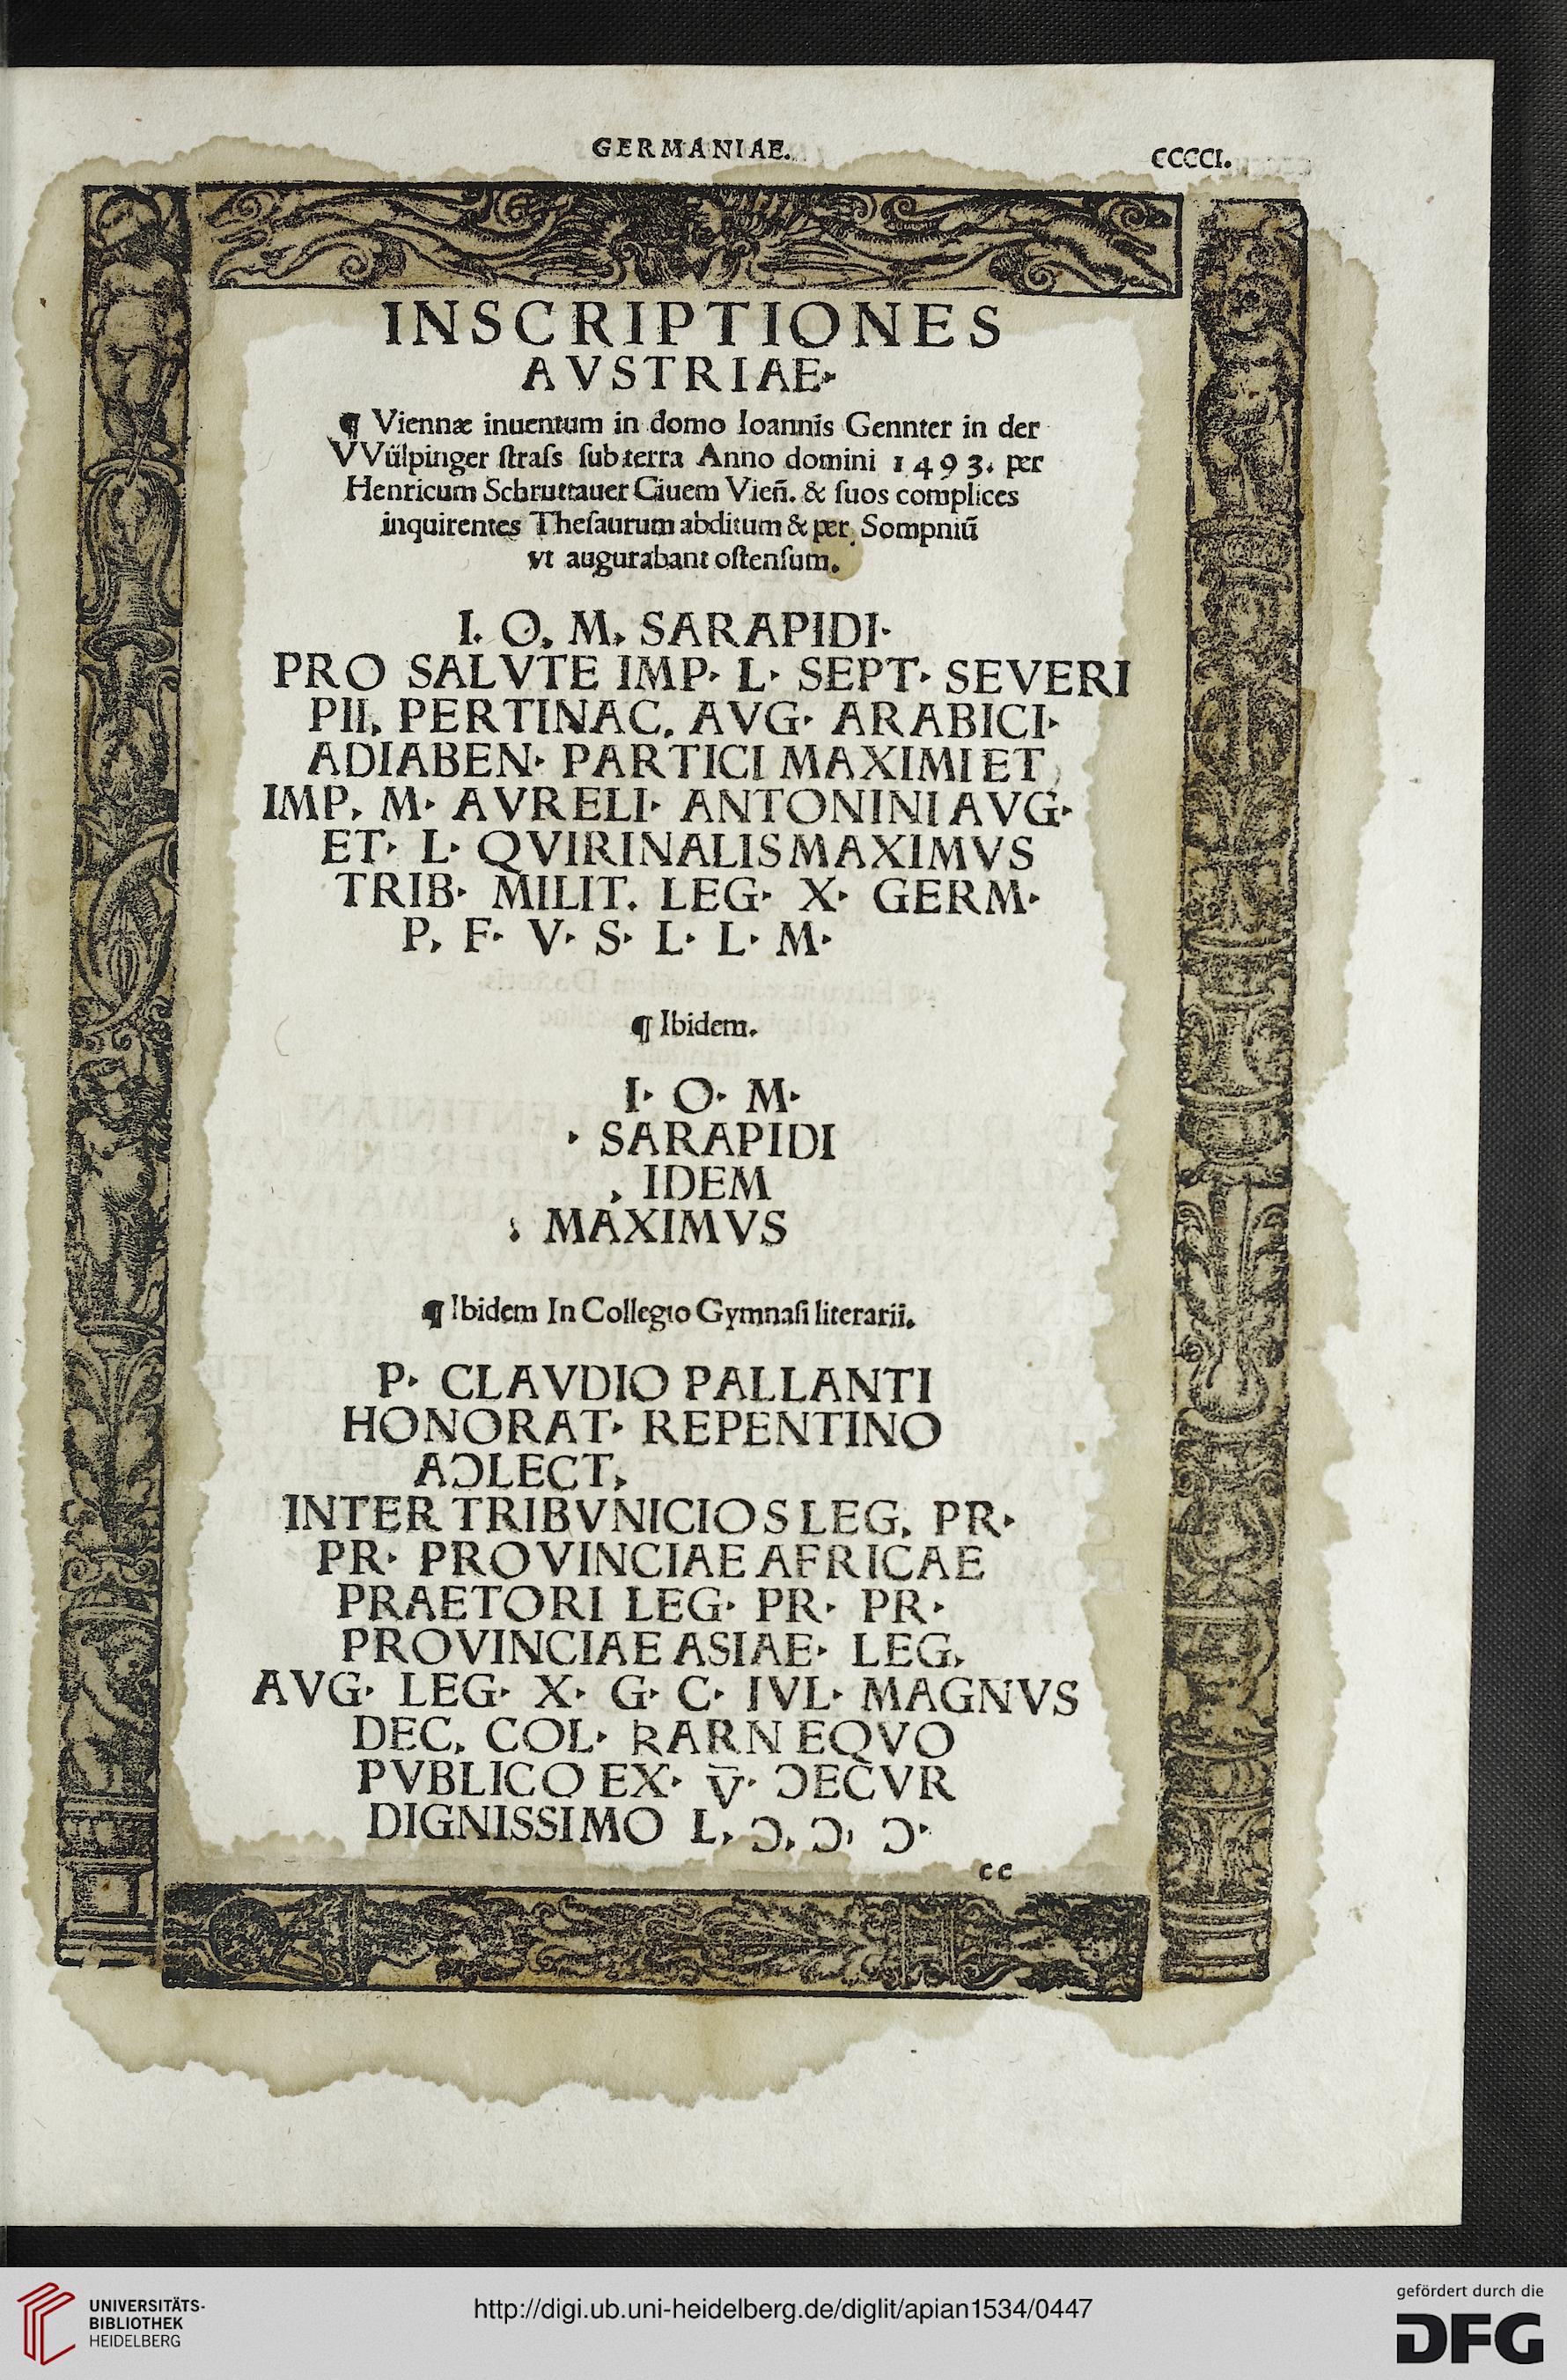 GERMANIAE.
CCCCI.
INSCRIPTIONES
AVSTRIAE·
¶ Viennæ inuentum in domo Ioannis Gennter in der
VVülpinger ſtraſs ſub terra Anno domini 1493. per
Henricum Schruttauer Ciuem Vieñ. & ſuos complices
inquirentes Theſaurum abditum & per Sompniū
vt augurabant oſtenſum.
I. O. M. SARAPIDI·
PRO SALVTE IMP· L· SEPT· SEVERI
PII, PERTINAC. AVG· ARABICI·
ADIABEN· PARTICI MAXIMI ET
IMP, M· AVRELI· ANTONINI AVG·
ET· L· QVIRINALIS MAXIMVS
TRIB· MILIT. LEG· X· GERM·
P, F· V· S· L· L· M·
¶ Ibidem.
I· O· M·
· SARAPIDI
, IDEM
: MAXIMVS
¶ Ibidem In Collegio Gymnaſi literarii.
P· CLAVDIO PALLANTI
HONORAT· REPENTINO
AƆLECT,
INTER TRIBVNICIOS LEG, PR·
PR· PROVINCIAE AFRICAE
PRAETORI LEG· PR· PR·
PROVINCIAE ASIAE· LEG,
AVG· LEG· X· G· C· IVL· MAGNVS
DEC, COL· RARN EQVO
PVBLICO EX· V̅· ƆECVR
DIGNISSIMO L, Ɔ, Ɔ, Ɔ·
cc
UNIVERSITÄTS-
BIBLIOTHEK
HEIDELBERG
http://digi.ub.uni-heidelberg.de/diglit/apian1534/0447
gefördert durch die
DFG